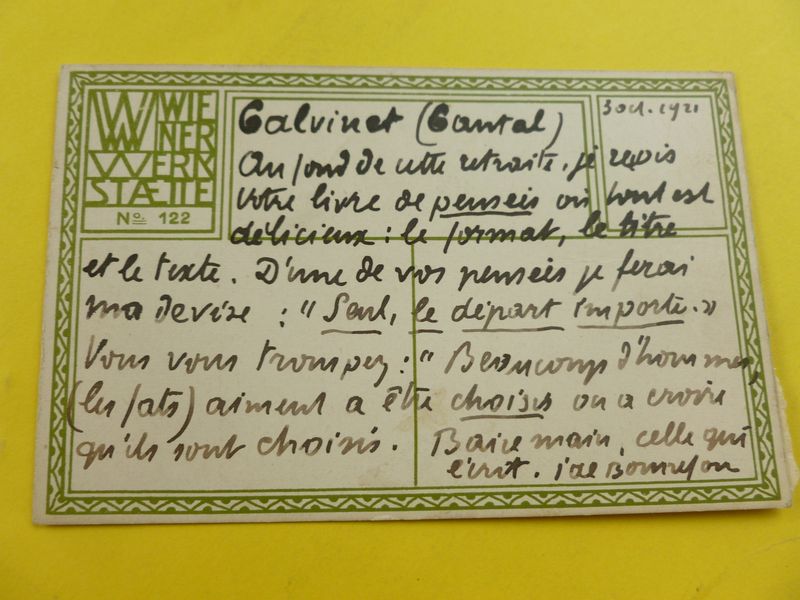 WIE
NER
WERK
STÆTTE
No. 122
3 oct. 1921
Calvinet (Cantal)
Au fond de cette retraite, je reçois
votre livre de pensées où tout est
délicieux : le format, le titre
et le texte. D'une de vos pensées je ferai
ma devise : "Seul, le départ importe."
Vous vous trompez : "Beaucoup d'hommes,
(les fats) aiment a être choisis ou a croire
qu'ils sont choisis. Baise main, celle qui
écrit. j de Bonnefon